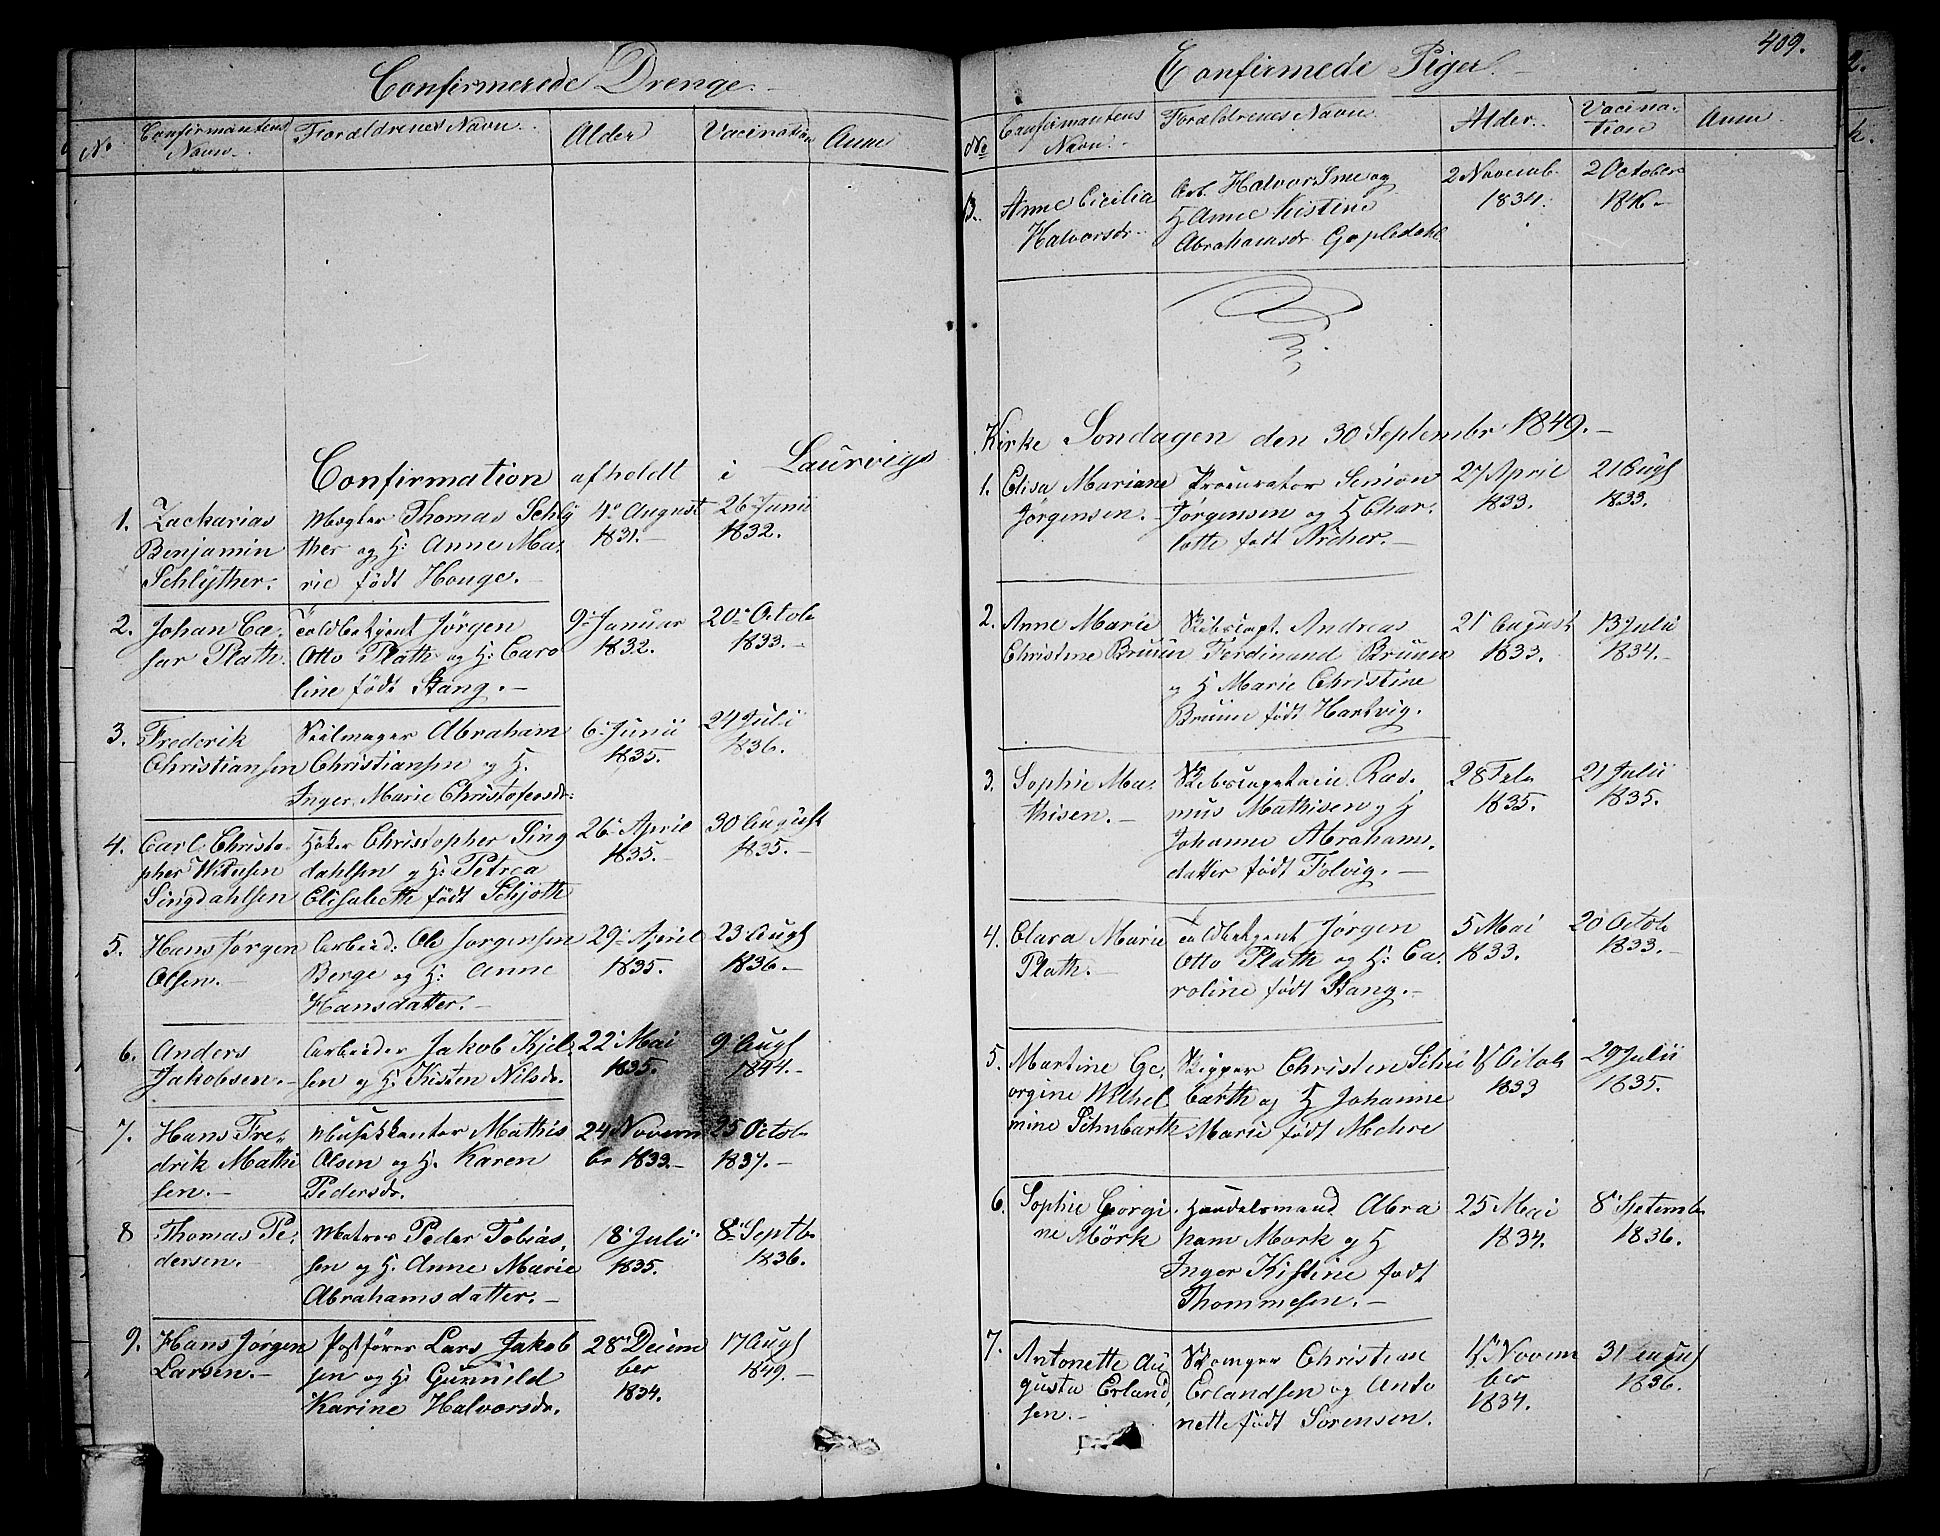 Confirmerede Drenge.
No
Confirmantens
Navn.
Forældrenes Navn.
Alder
Vacination
Anm
Confirmation afholdt i Laurvigs
1. Zackarias
Benjamin
Schlÿther.
Mægler Thomas Schlÿ
ther og H: Anne Ma-
rie født Houge.
4de August
1831.
26 Junii
1832.
2. Johan Cæ-
sar Plath.
Toldbetjent Jørgen
Otto Plath og H: Caro
line født Stang.
9 Januar
1832.
20 Octob
1833.
3. Frederik
Christiansen
Seilmager Abraham
Christiansen og H.
Inger Marie Christofersdr.
6 Junii
1835.
24 Julii
1836.
4. Carl Christo-
pher
Singdahlsen
Høker Christopher Sing
dahlsen og H: Petrea
Elisabeth født Schjøth
26 April
1835.
30 August
1835.
5. Hans Jørgen
Olsen.
Arbeid: Ole Jørgensen
Berge og H: Anne
Hansdatter.
29 April
1835.
23 Augs
1836.
6. Anders
Jakobsen.
Arbeider Jakob Kjel-
sen og H. Kisten Nilsdr.
22 Mai
1835.
9 Augs
1844.
7. Hans Fre-
drik Mathi
sen.
Musikkanter Mathis
Olsen og H. Karen
Pedersdr.
24 Novem
br 1833.
25 Octob
1837.
8 Thomas Pe-
dersen.
Matros Peder Tobias-
sen og H. Anne Marie
Abrahamsdatter.
18 Julii
1835.
8 Septb
1836.
9. Hans Jørgen
Larsen.
Postfører Lars Jakob
sen og H: Gunnild
Karine Halvorsdr.
28 Decem
ber
1834.
17 Augs
1849.
409.
Confirmede Piger.
No
Confirmantens
Navn.
Forældrenes Navn
Alder.
Vacina-
tion
Anm.
13. Anne Cicilia
Halvorsdr.
Arb. Halvor Ime og
H Anne Kistine
Abrahamsdr. Gopledahl
2 Novemb.
1834.
2 October
1846.
Kirke Søndagen den 30 Septembr 1849.
1. Elisa Mariane
Jørgensen.
Procurator Simon
Jørgensen og H Char-
lotte født Archer.
27 April
1833.
21 Augs
1833.
2. Anne Marie
Christine Bruun
Skibscapt. Andreas
Ferdinand Bruun
og H Marie Christine
Bruun født Hartvig.
21 August
1833.
13 Julii
1834.
3. Sophie Ma-
thisen.
Ras-
mus Mathisen og H
Johanne Abrahams-
datter født Tolvig.
28 Feb
1835.
21 Julii
1835.
4. Clara Marie
Plath.
Toldbetjent Jørgen
Otto Plath og H: Ca-
roline født Stang.
5 Mai
1833.
20 Octob
1833.
5. Martine Ge-
orgine Wilhel
mine Schubarth
Skipper Christen Schu
barth og H Johanne
Marie født Mehre
Octob
1833
29 Julii
1835.
6. Sophie Georgi
ne Mørk
Handelsmand Abra
ham Mørk og H
Inger Kistine født
Thommesen.
25 Mai
1834.
8 Septemb
1836.
7. Antonette Au
gusta Erland
sen.
Christian
Erlandsen og Anto
nette født Sørensen.
Novem
ber
1834.
31 August
1836.